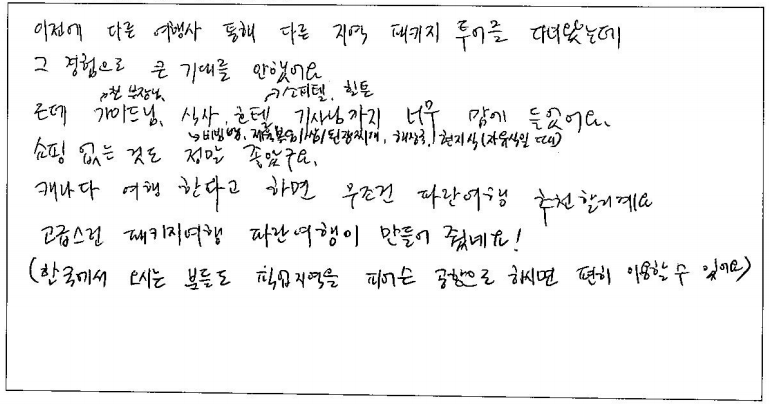 이전에 다른 여행사 통해 다른 지역 패키지 투어를 다녀왔는데
그 경험으로 큰 기대를 안했어요
부장님 힐튼
근데 가이드님, 식사, 호텔, 기사님까지 너무 맘에 들었어요.
비빔밥, 제육볶음/쌈/된장찌개, 해장국, 현지식(자유식일 때)
쇼핑 없는 것도 정말 좋았구요.
캐나다 여행 한다고 하면 무조건 파란여행 추천할거예요
고급스런 패키지여행 파란여행이 만들어 줬네요!
(한국에서 오시는 분들도 픽업지역을 피어슨 공항으로 하시면 편히 이용할 수 있어요)